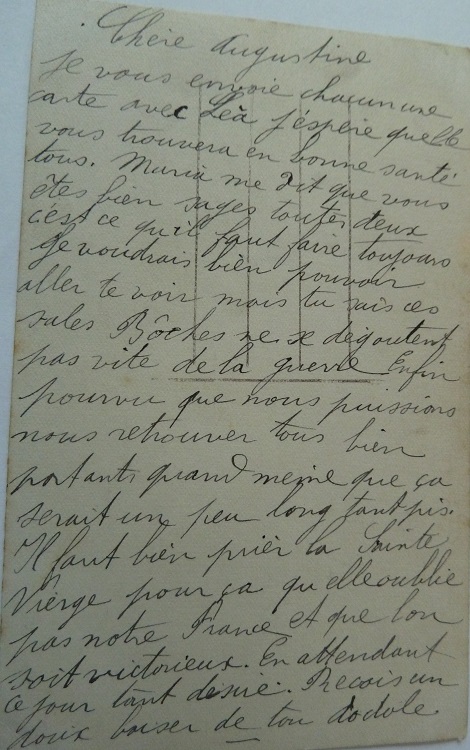 Chère Augustine
Je vous envoie chacun une
carte avec Léà j'éspère quelle
vous trouvera en bonne santé
tous. Maria me dit que vous
êtes bien sages toutes deux
c'ést ce qu'il faut faire toujours
Je voudrais bien pouvoir
aller te voir mais tu sais ces
sales Bôches ne se dégoutent
pas vite de la guerre Enfin
pourvu que nous puissions
nous retrouver tous bien
portants quand meme que ça
serait un peu long tant pis.
Il faut bien prièr la Sainte
Viérge pour ça qu'elle oublie
pas notre France et que l'on
soit victorieux. En attendant
ce jour tant désiré. Recois un
doux baiser de ton